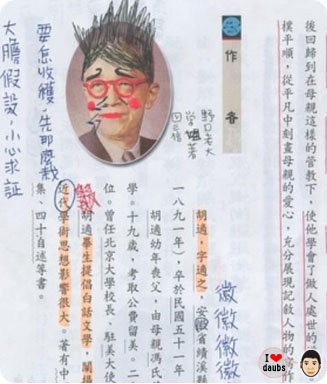 後回歸到在母親這樣的管教下，使他學會了做人處世的
樸平順，從平凡中刻畫母親的愛心，充分展現記敘人物的
作者
野口老大
胡適，字適之，安徽省績溪
徽徽徽徽
一八九一年），卒於民國五十一年
胡適幼年喪父，由母親馮氏
學。十九歲，考取公費留美。二
位。曾任北京大學校長、駐美大使
胡適畢生提倡白話文學，闡揚
近代學術思想影響很大。著有中
集、四十自述等書。
要怎收穫，先那麼栽
大膽假設，小心求証
I ❤ daubs